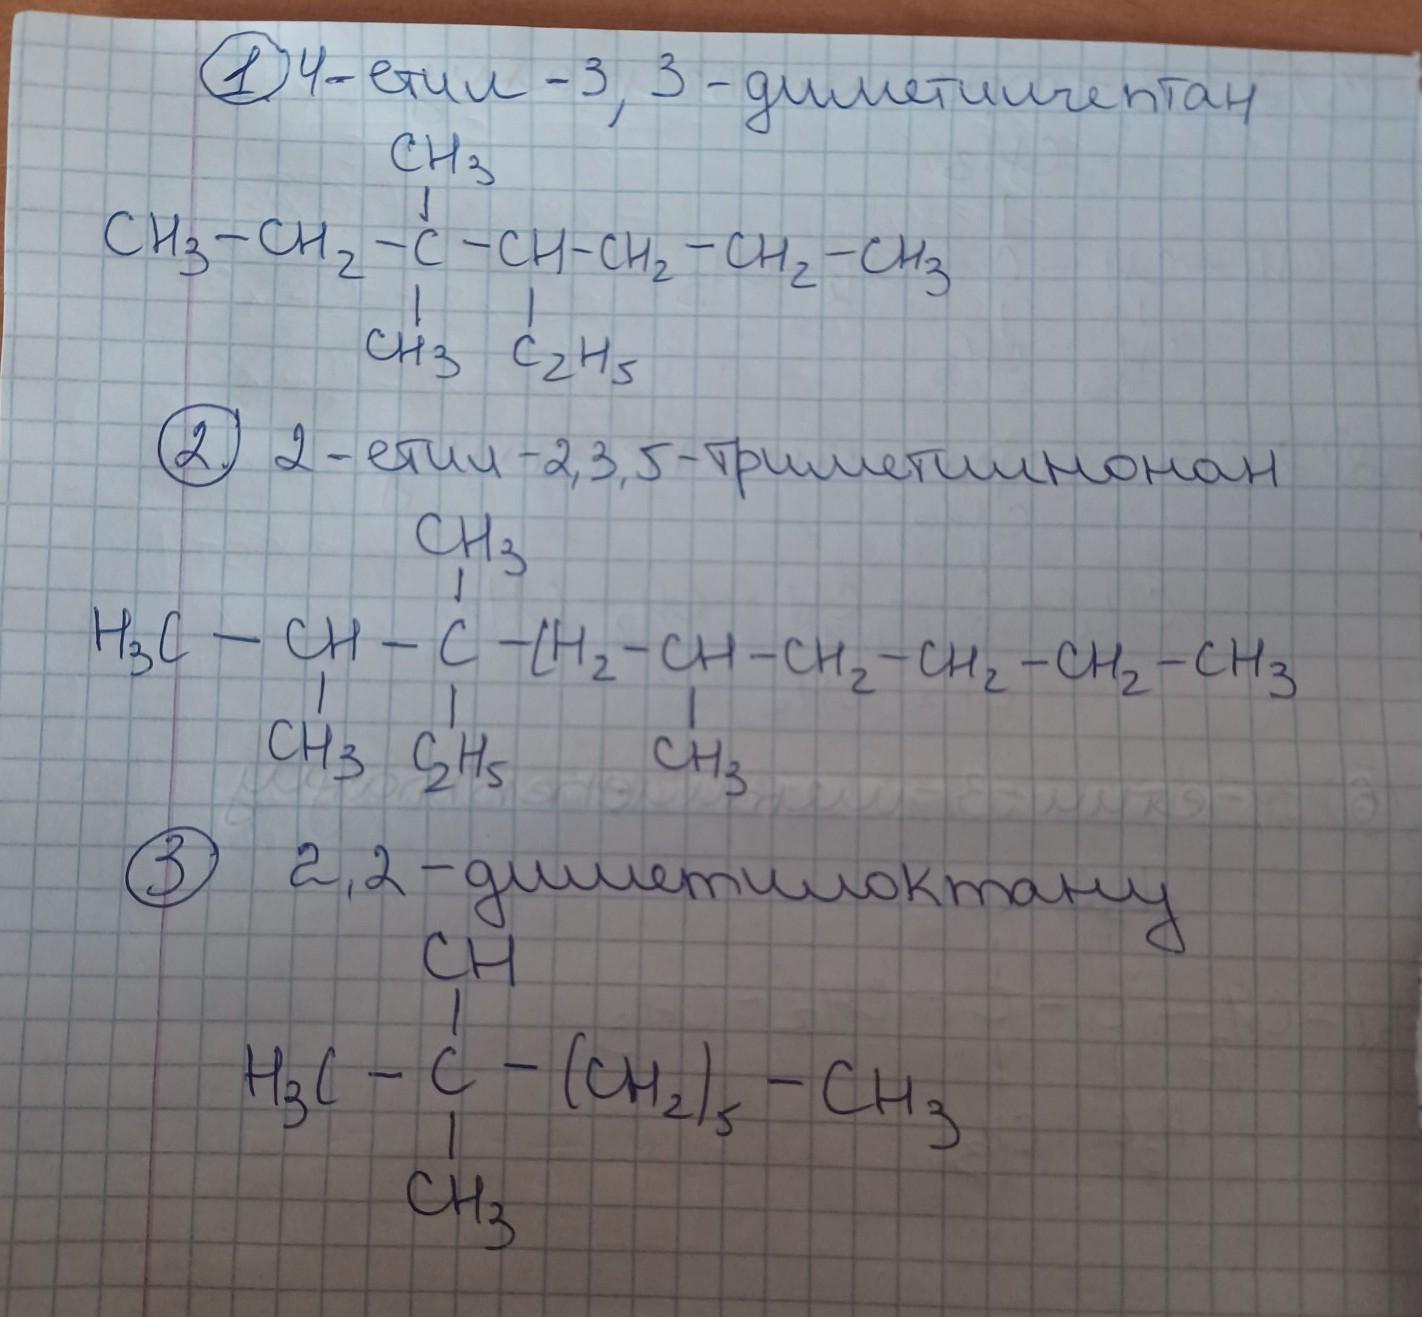 ① 4-етил-3,3-диметилгептан
CH3
CH3-CH2-C-CH-CH2-CH2-CH3
CH3 C2H5
② 2-етил-2,3,5-триметилнонан
CH3
H3C-CH-C-CH2-CH-CH2-CH2-CH2-CH3
CH3 C2H5 CH3
③ 2,2-диметилоктану
CH
H3C-C-(CH2)5-CH3
CH3